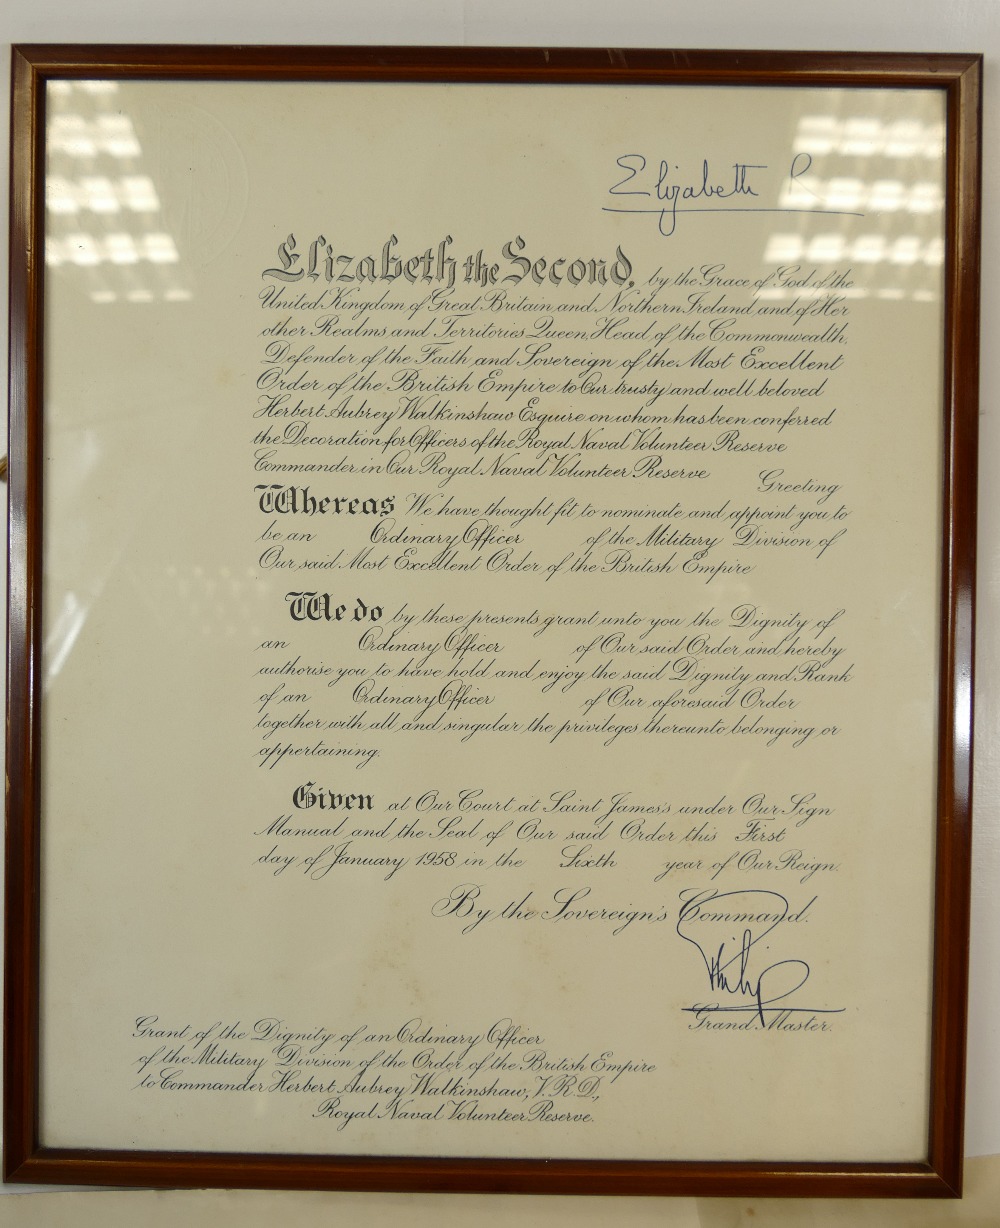 Elizabeth R
Elizabeth the Second, by the Grace of God of the
United Kingdom of Great Britain and Northern Ireland and of Her
other Realms and Territories Queen, Head of the Commonwealth,
Defender of the Faith and Sovereign of the Most Excellent
Order of the British Empire to Our trusty and well beloved
Herbert Aubrey Walkinshaw Esquire on whom has been conferred
the Decoration for Officers of the Royal Naval Volunteer Reserve
Commander in Our Royal Naval Volunteer Reserve
Greeting
Whereas We have thought fit to nominate and appoint you to
be an Ordinary Officer of the Military Division of
Our said Most Excellent Order of the British Empire
We do by these presents grant unto you the Dignity of
an Ordinary Officer of Our said Order and hereby
authorise you to have hold and enjoy the said Dignity and Rank
of an Ordinary Officer of Our aforesaid Order
together with all and singular the privileges thereunto belonging or
appertaining.
Given at Our Court at Saint James's under Our Sign
Manual and the Seal of Our said Order this First
day of January 1958 in the Sixth year of Our Reign.
By the Sovereign's Command.
Philip
Grand Master.
Grant of the Dignity of an Ordinary Officer
of the Military Division of the Order of the British Empire
to Commander Herbert Aubrey Walkinshaw, V.R.D.,
Royal Naval Volunteer Reserve.